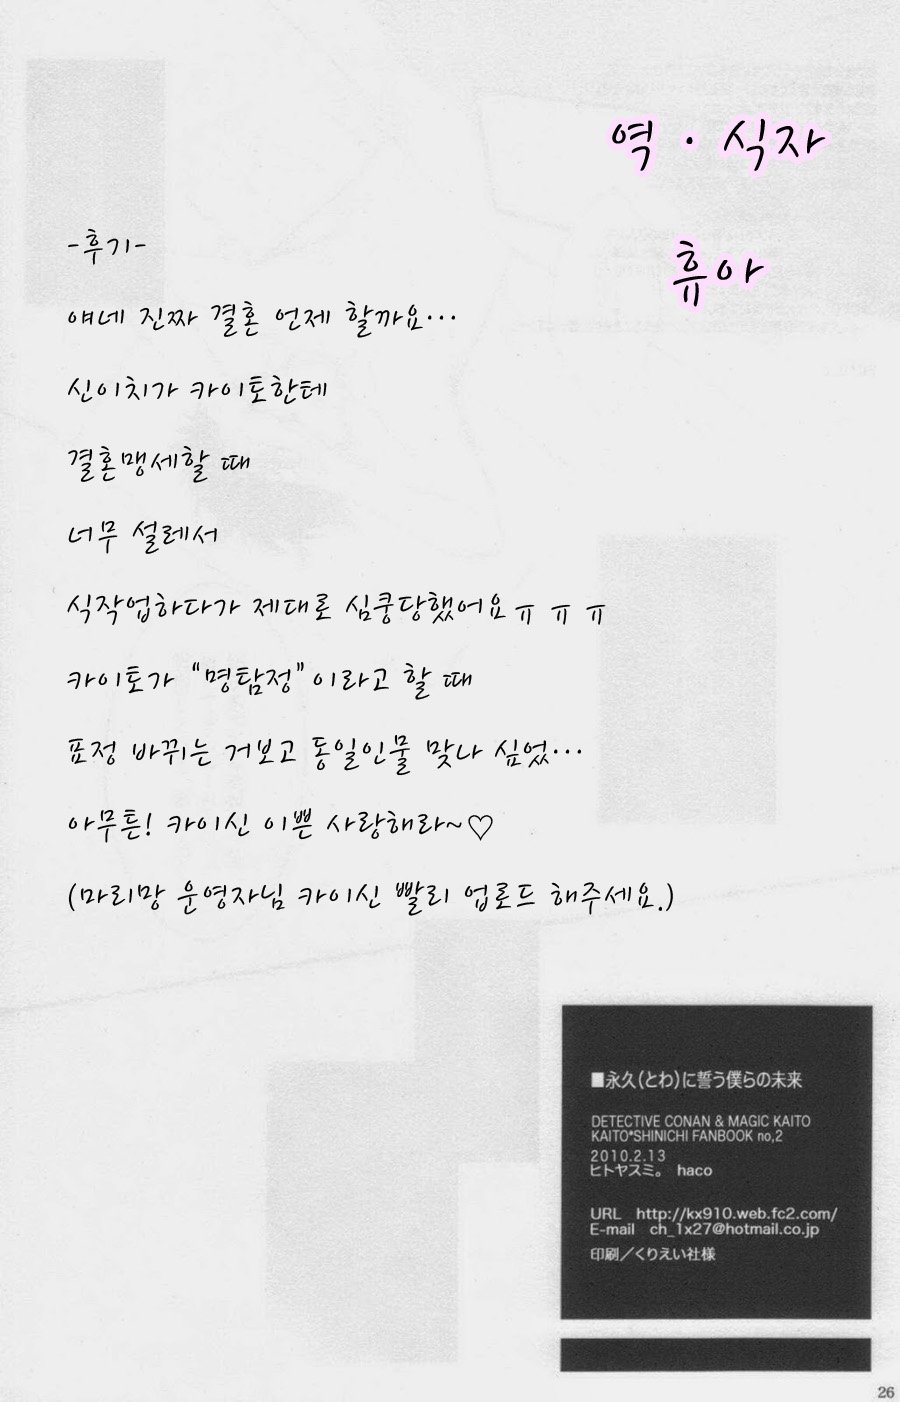 역・식자
휴아
-후기-
얘네 진짜 결혼 언제 할까요…
신이치가 카이토한테
결혼맹세할 때
너무 설레서
식작업하다가 제대로 심쿵당했어요ㅠㅠㅠ
카이토가 "명탐정"이라고 할 때
표정 바뀌는 거보고 동일인물 맞나 싶었…
아무튼! 카이신 이쁜 사랑해라~♡
(마리망 운영자님 카이신 빨리 업로드 해주세요.)
■永久(とわ)に誓う僕らの未来
DETECTIVE CONAN & MAGIC KAITO
KAITO*SHINICHI FANBOOK no,2
2010.2.13
ヒトヤスミ。 haco
URL http://kx910.web.fc2.com/
E-mail ch_1x27@hotmail.co.jp
印刷／くりえい社様
26